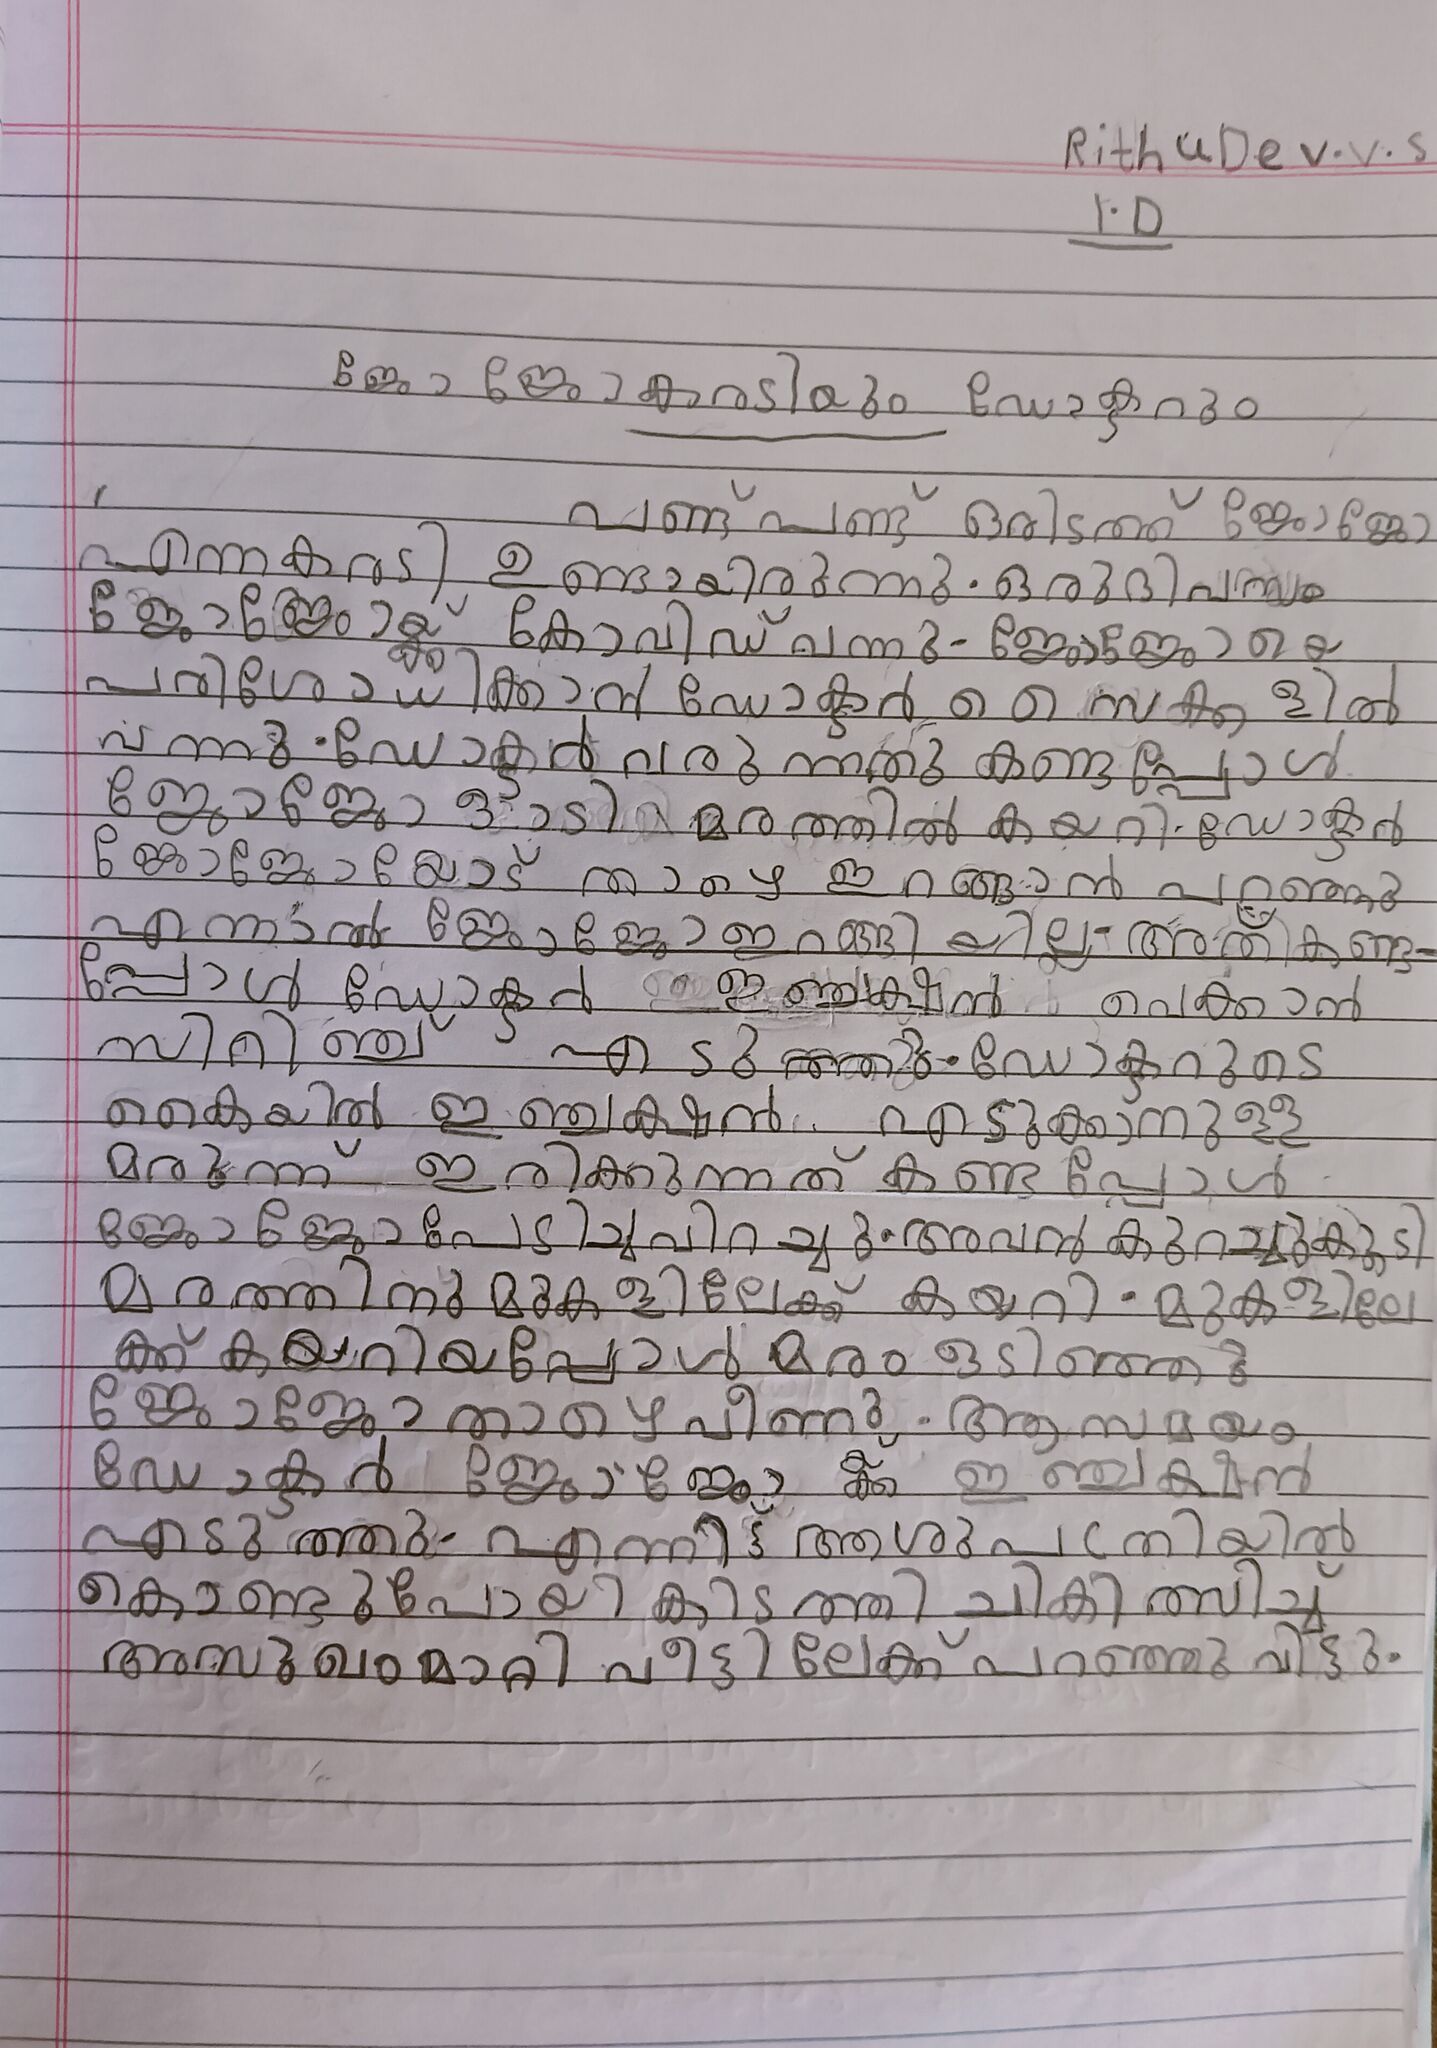 RithuDev.v.s
1.D
ജോജോകരടിയും ഡോക്ടറും
പണ്ട് പണ്ട് ഒരിടത്ത് ജോജോ
എന്നകരടി ഉണ്ടായിരുന്നു. ഒരുദിവസം
ജോജോയ്ക്ക് കോവിഡ് വന്നു. ജോജോയെ
പരിശോധിക്കാൻ ഡോക്ടർ സൈക്കളിൽ
വന്നു. ഡോക്ടർ വരുന്നതു കണ്ടപ്പോൾ
ജോജോ ഓടി മരത്തിൽ കയറി. ഡോക്ടർ
ജോജോയോട് താഴെ ഇറങ്ങാൻ പറഞ്ഞു
എന്നാൽ ജോജോ ഇറങ്ങിയില്ല. അത് കണ്ട-
പ്പോൾ ഡോക്ടർ ഇഞ്ചക്ഷൻ വെക്കാൻ
സിറിഞ്ച് എടുത്തു. ഡോക്ടറുടെ
കൈയിൽ ഇഞ്ചക്ഷൻ എടുക്കാനുള്ള
മരുന്ന് ഇരിക്കുന്നത് കണ്ടപ്പോൾ
ജോജോപേടിച്ചുവിറച്ചു. അവൻ കുറച്ചുകൂടി
മരത്തിനുമുകളിലേക്ക് കയറി. മുകളിലേ
ക്ക് കയറിയപ്പോൾ മരം ഒടിഞ്ഞു
ജോജോ താഴെ വീണു. ആ സമയം
ഡോക്ടർ ജോജോക്ക് ഇഞ്ചക്ഷൻ
എടുത്തു. എന്നീട്ട് ആശുപത്രിയിൽ
കൊണ്ടുപോയി കിടത്തി ചികിത്സിച്ച്
അസുഖംമാറി വീട്ടിലേക്ക് പറഞ്ഞു വിട്ടു.